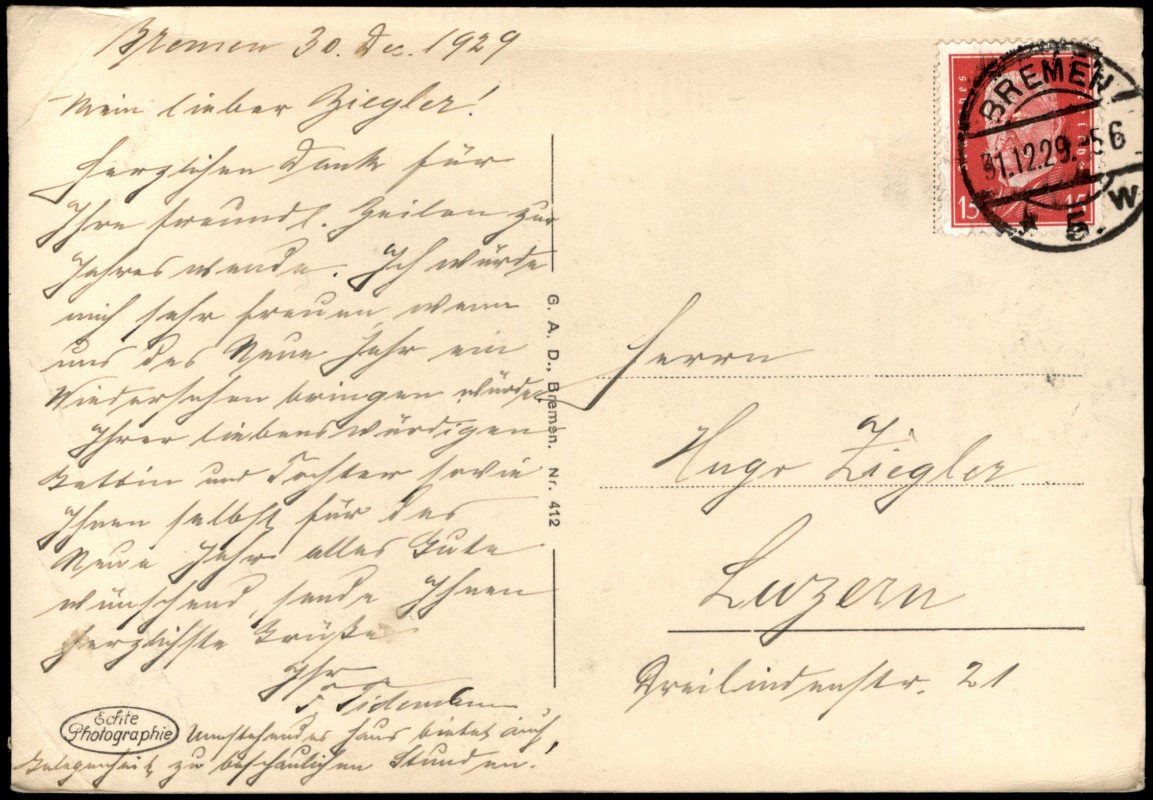 Bremen 30. Dec. 1929
Mein lieber Ziegler!
Herzlichen Dank für
Ihre freundl. Zeilen zur
Jahreswende. Ich würde
mich sehr freuen, wenn
uns das Neue Jahr ein
Wiedersehen bringen würde.
Ihrer liebenswürdigen
Gattin und Tochter sowie
Ihnen selbst für das
Neue Jahr alles Gute
wünschend, sende Ihnen
herzlichste Grüße
Ihr
Umstehendes Haus bietet auch
Gelegenheit zu beschaulichen Stunden!
Echte
Photographie
G. A. D., Bremen. Nr. 412
BREMEN
31.12.29.
5 W
15 15
Herrn
Hugo Ziegler
Luzern
Dreilindenstr. 21